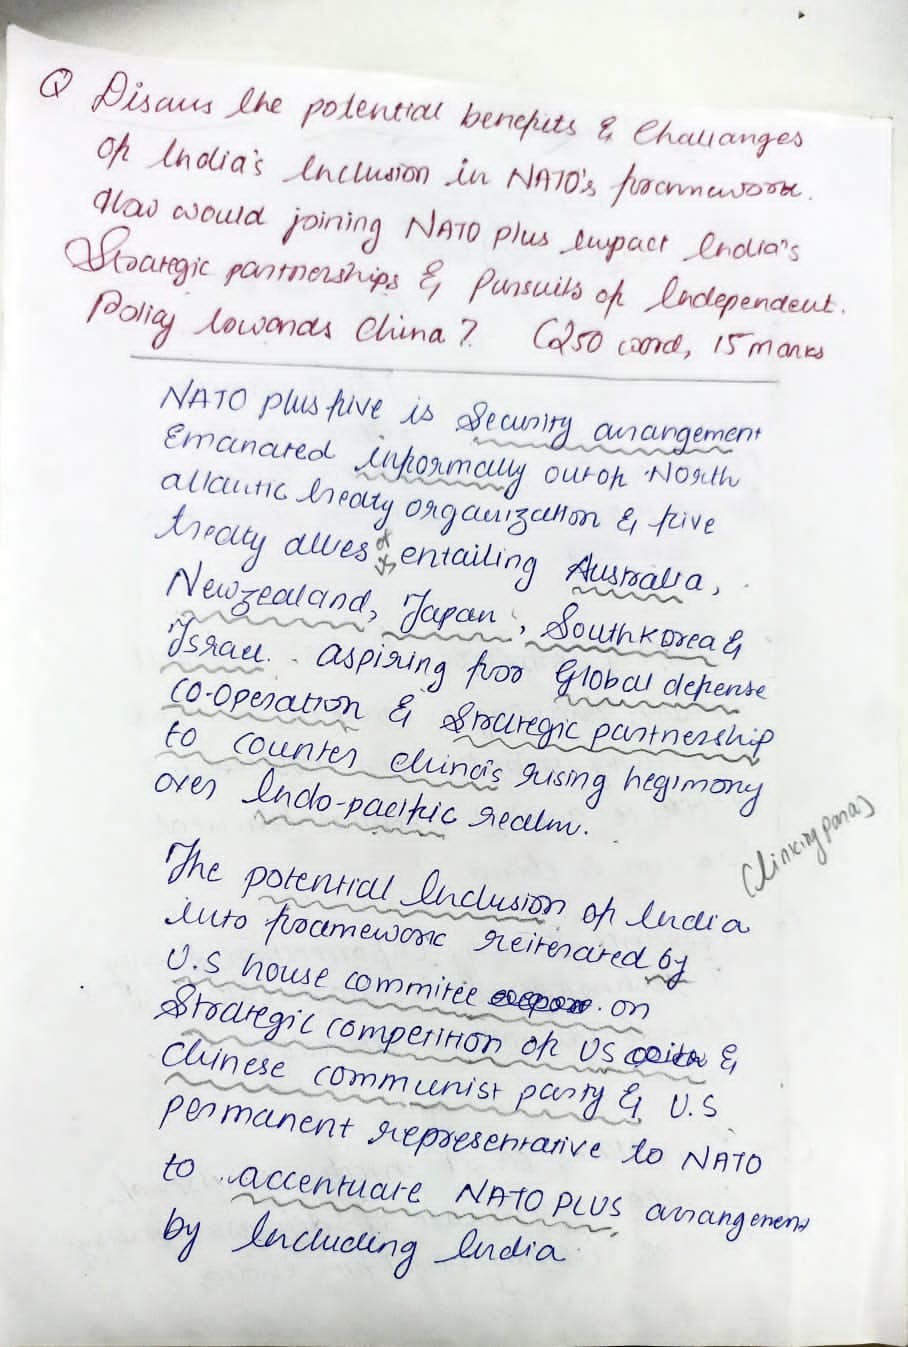 Q Discuss the potential benefits & Challanges
of India's Inclusion in NATO's framework.
How would joining NATO plus impact India's
Strategic partnerships & Pursuits of Independent.
Policy towards China? (250 word, 15 marks
NATO plus five is Security arrangement
Emanated informally out of North
atlantic treaty organization & five
treaty allies entailing Australia,
Newzealand, Japan, South korea &
Israel. aspiring for Global defense
co-operation & Strategic partnership
to counter china's rising hegimony
over Indo-pacific realm.
(linking para)
The potential Inclusion of India
into framework reiterated by
U.S house committee on
Strategic competition of US &
Chinese communist party & U.S
permanent representative to NATO
to accentuate NATO PLUS arrangement
by Including India.